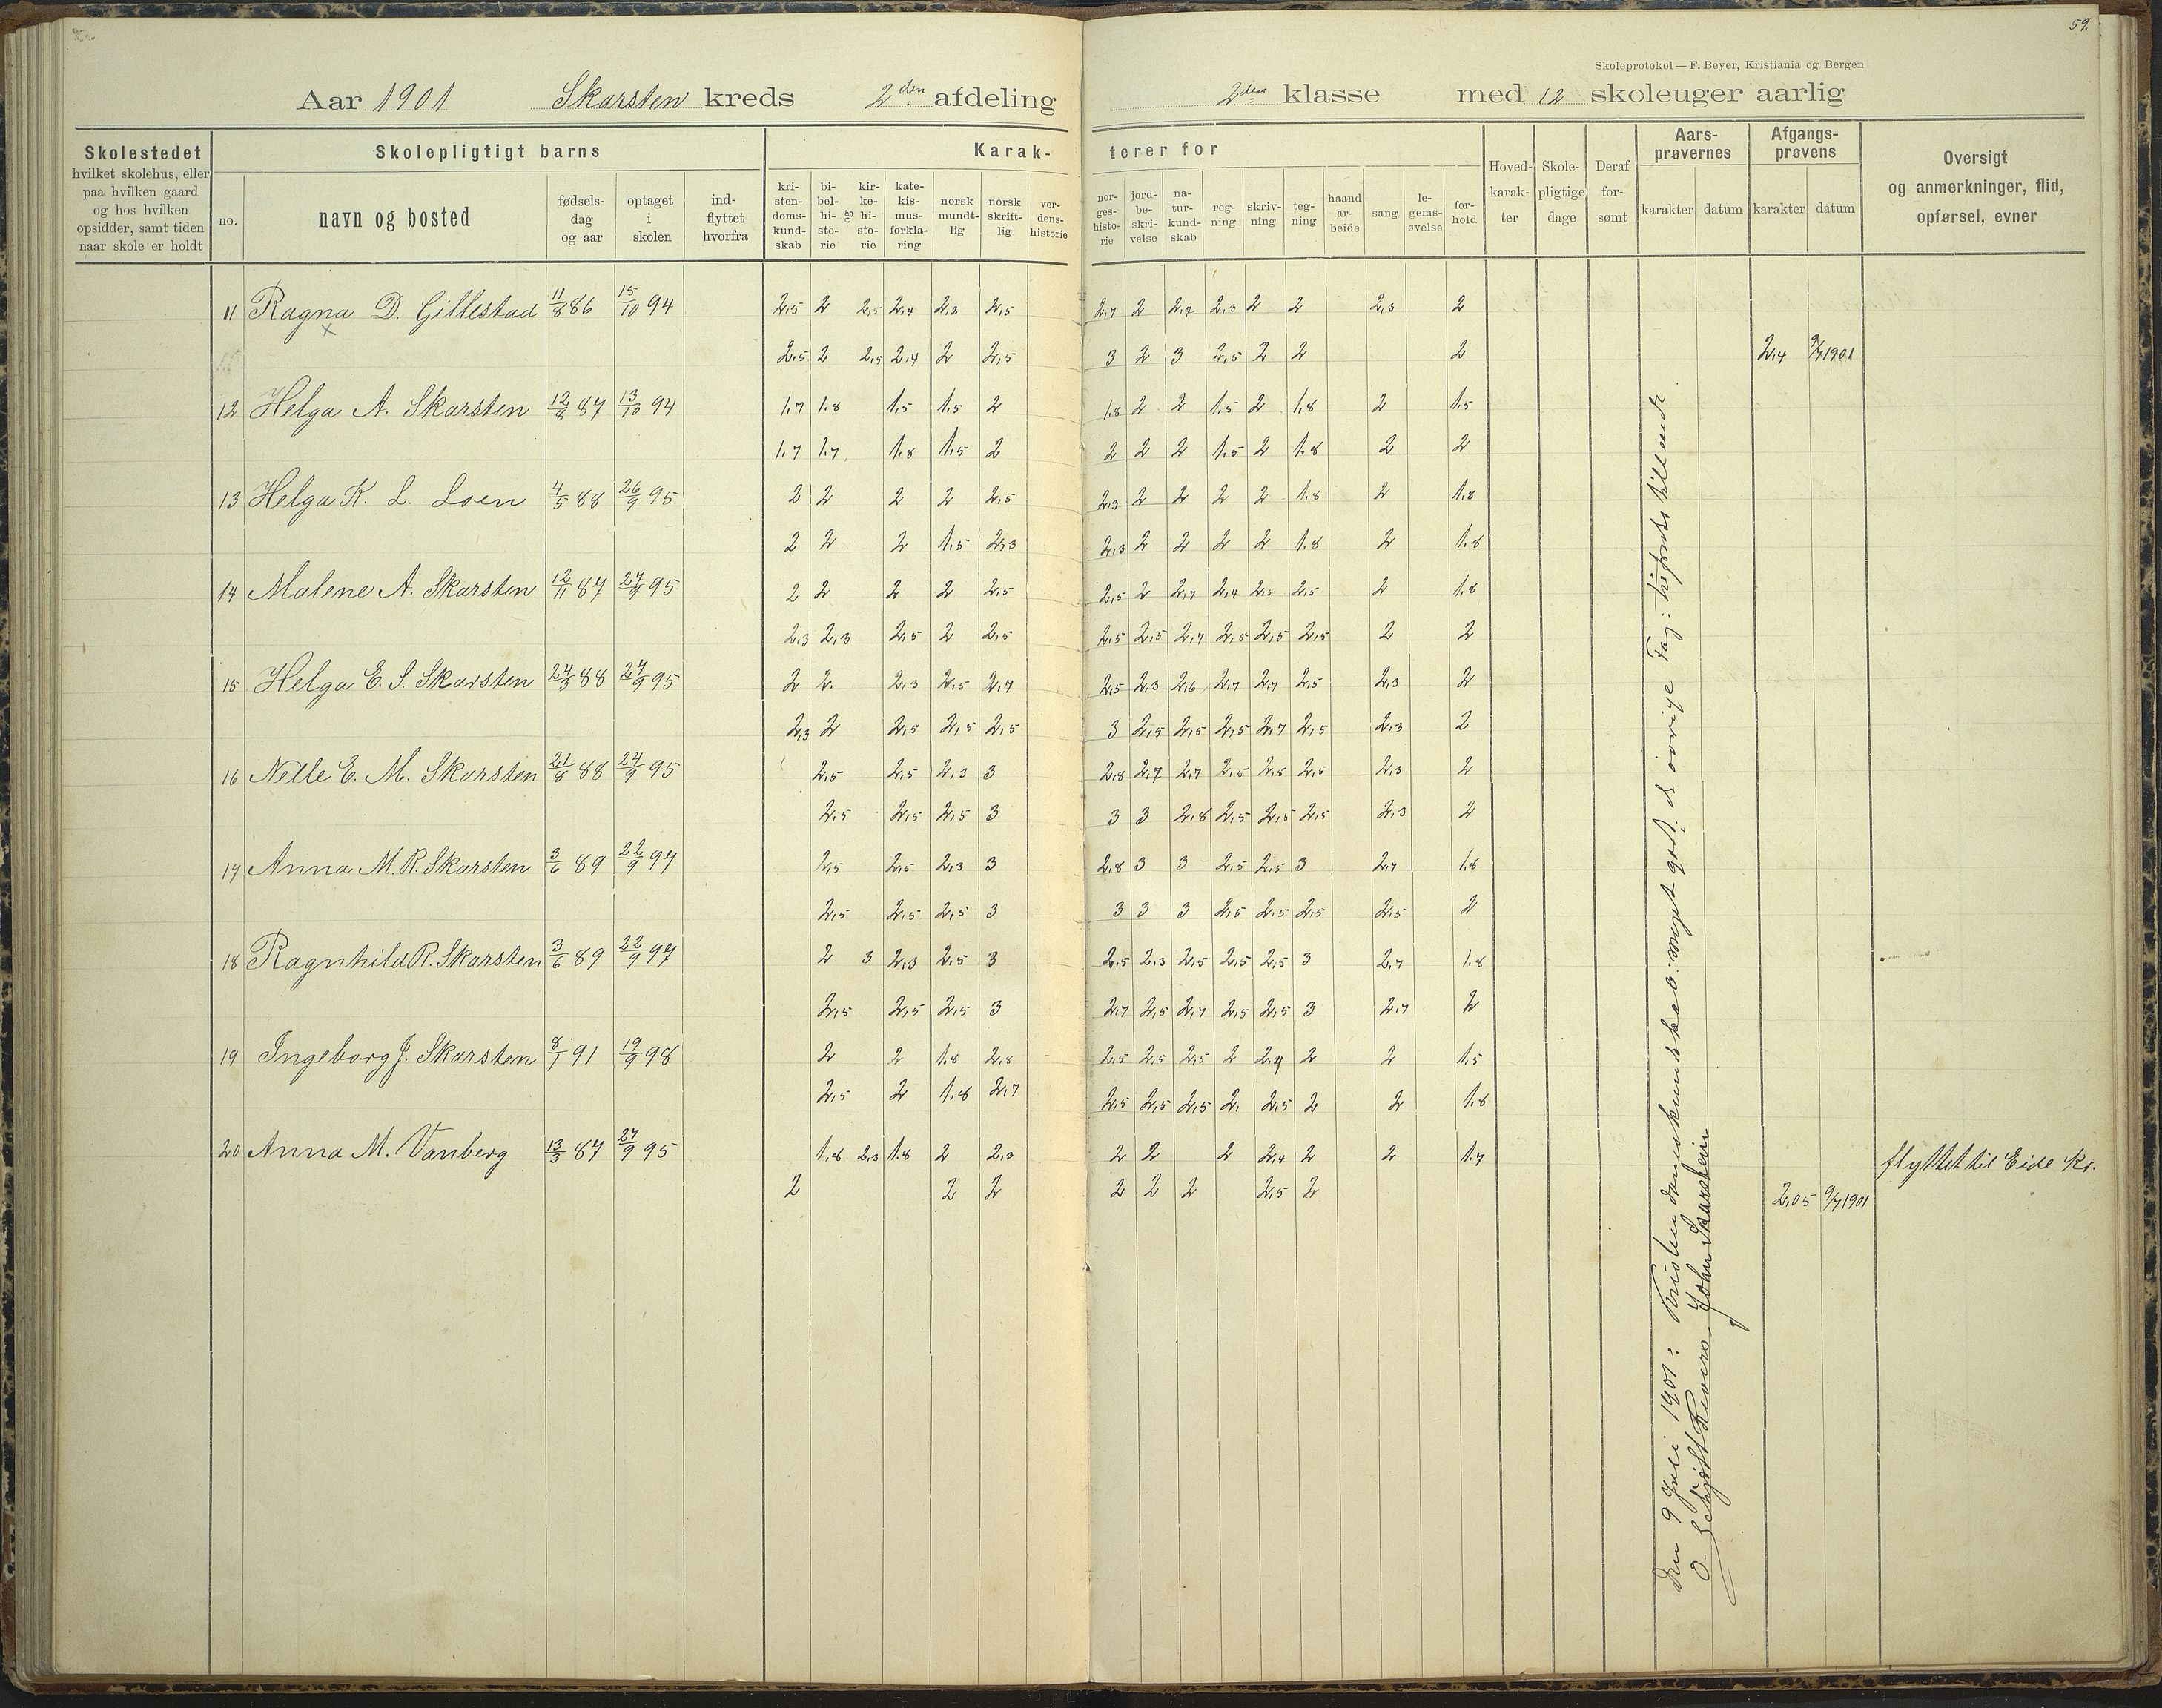 59.
Skoleprotokol — F. Beyer, Kristiania og Bergen
Aar 1901 Skarsten kreds 2den afdeling 2den klasse med 12 skoleuger aarlig
Skolestedet hvilket skolehus, eller paa hvilken gaard og hos hvilken opsidder, samt tiden naar skole er holdt
Skolepligtigt barns
no. navn og bosted fødsels-dag og aar optaget i skolen ind-flyttet hvorfra
Karak-terer for
kri-sten-doms-kund-skab bi-bel-hi-sto-rie og kir-ke-hi-sto-rie kate-kis-mus-forkla-ring norsk mundt-lig norsk skrift-lig ver-dens-historie nor-ges-histo-rie jord-be-skri-velse na-tur-kund-skab reg-ning skriv-ning teg-ning haand ar-beide sang le-gems-øvelse for-hold
Hoved-karak-ter Skole-pligtige dage Deraf for-sømt
Aars-prøvernes karakter datum
Afgangs-prøvens karakter datum
Oversigt og anmerkninger, flid, opførsel, evner
11 Ragna D. Gillestad 11/8 86 15/10 94 2,5 2 2,5 2,4 2,2 2,5 2,7 2 2,7 2,3 2 2 2,3 2
2,5 2 2,5 2,4 2 2,5 3 2 3 2,5 2 2 2 2,4 9/7 1901
12 Helga A. Skarsten 12/8 87 13/10 94 1,7 1,8 1,5 1,5 2 1,8 2 2 1,5 2 1,8 2 1,5
1,7 1,7 1,8 1,5 2 2 2 2 1,5 2 1,8 2 2
13 Helga K. L. Loen 4/5 88 26/9 95 2 2 2 2 2,5 2,3 2 2 2 2 1,8 2 1,8
2 2 2 1,5 2,3 2,3 2 2 2 2 1,8 2 1,8
14 Malene A. Skarsten 12/11 87 27/9 95 2 2 2 2 2,5 2,5 2 2,7 2,4 2,5 2,5 2 1,8
2,3 2,3 2,5 2 2,5 2,5 2,5 2,7 2,5 2,5 2,5 2 2
15 Helga E. S. Skarsten 24/3 88 27/9 95 2 2 2,3 2,5 2,7 2,5 2,3 2,6 2,7 2,7 2,5 2,3 2
2,3 2 2,5 2,5 2,5 3 2,5 2,5 2,5 2,7 2,5 2,3 2
16 Nelle E. M. Skarsten 21/8 88 24/9 95 2,5 2,5 2,3 3 2,8 2,7 2,7 2,5 2,5 2,5 2,3 2
2,5 2,5 2,5 3 3 3 2,8 2,5 2,5 2,5 2,3 2
17 Anna M. R. Skarsten 3/6 89 22/9 97 2,5 2,5 2,3 3 2,8 3 3 2,5 2,5 3 2,7 1,8
2,5 2,5 2,5 3 3 3 3 2,5 2,5 2,5 2,5 2
18 Ragnhild R. Skarsten 3/6 89 22/9 97 2 3 2,3 2,5 3 2,5 2,3 2,5 2,5 2,5 3 2,7 1,8
2,5 2,5 2,5 3 2,7 2,5 2,7 2,5 2,5 3 2,7 2
19 Ingeborg J. Skarsten 8/1 91 19/9 98 2 2 1,8 2,8 2,5 2,5 2,5 2 2,4 2 2 1,5
2,5 2 1,8 2,7 2,5 2,5 2,5 2, 2,5 2 2 1,8
20 Anna M. Vanberg 13/3 87 27/9 95 1,8 2,3 1,8 2 2,3 2 2 2 2,4 2 2 1,7 flyttet til Eide Kr.
2 2 2 2 2 2 2,5 2 2,05 9/7 1901
Den 9 Juli 1901: Kristendomskundskab: meget godt. de øvrige Fag: tilfredsstillende
John Skarstein